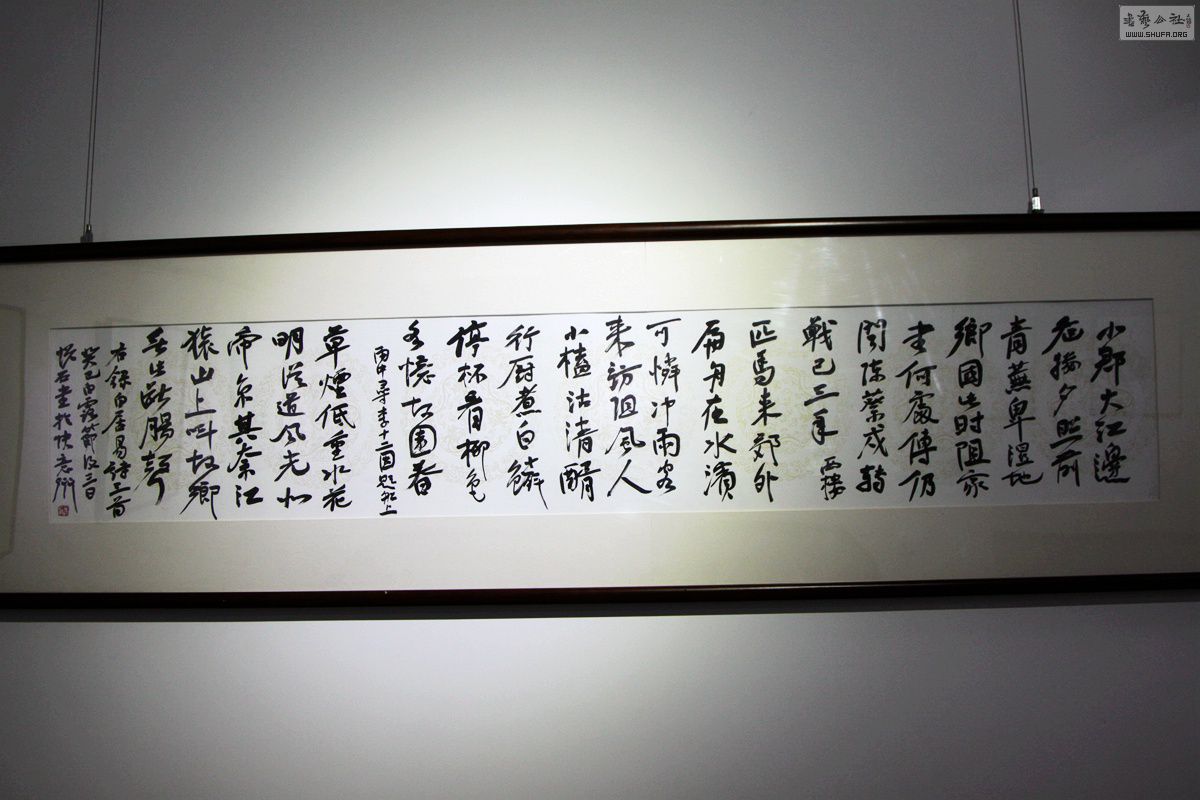 小郡大江邊
危樓夕照前
青蕪卑濕地
鄉國此時阻家
書何處傳仍
聞陳蔡戍轉
戰已三年 西樓
匹馬來郊外
扁舟在水濱
可憐沖雨客
來訪阻風人
小榼沽清醑
行厨煮白鱗
停杯看柳色
各憶故園春
雨中尋李十二因題船上
草煙低重水花
明從道風光似
帝京其奈江
猿山上叫故鄉
無此斷腸聲
右錄白居易詩三首
癸巳白露節後三日
書於
書藝公社
WWW.SHUFA.ORG